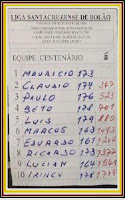 LIGA SANTACRUZENSE DE BOLÃO
EQUIPE CENTENÁRIO
1 MAURICIO 173
2 CLAUDIO 174 347
3 PAULO 176 523
4 BETO 178 701
5 LUIS 179 880
6 MARCOS 163 1043
7 EDUARDO 161
8 RICARDO 173
9 LUCIAN 164 1541
10 IRINEU 178 1719